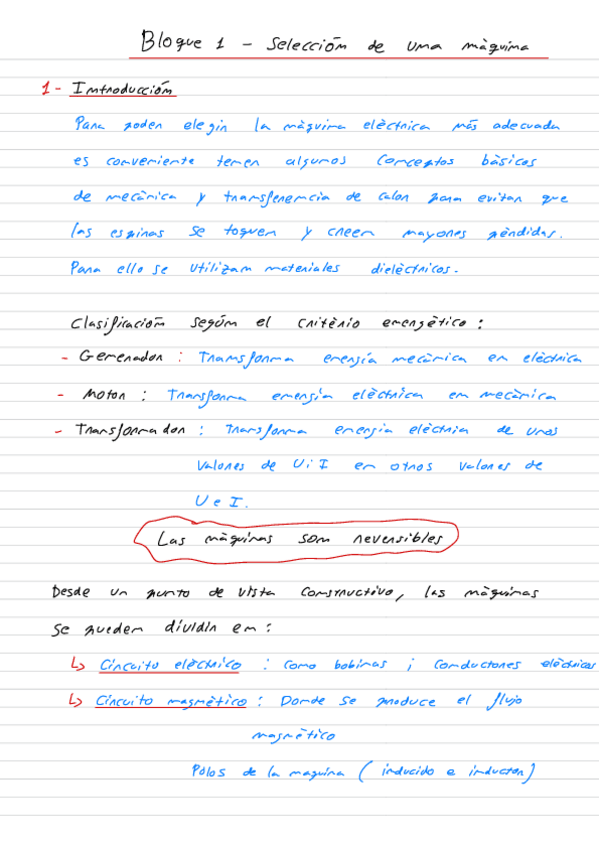 Bloque 1 - Selección de una màquina
1- Introducción
Para poder elegir la màquina elèctrica màs adecuada
es conveniente tener algunos conceptos bàsicos
de mecànica y transferencia de calor para evitar que
las espiras se toquen y creen mayores pèrdidas.
Para ello se utilizan materiales dielèctricos.
Clasificación según el critèrio energètico :
- Generador : Transforma energía mecànica en elèctrica
- Motor : Transforma energía elèctrica en mecànica
- Transformador : Transforma energia elèctria de unos
valores de U i I en otros valores de
U e I.
Las màquinas son reversibles
Desde un punto de vista constructivo, las màquinas
se pueden dividir en :
↳ Circuito elèctrico : Como bobinas i conductores elèctricos
↳ Circuito magnètico : Donde se produce el flujo
magnètico
Polos de la maquina ( inducido e inductor)